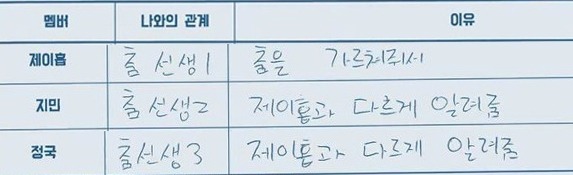 멤버 나와의 관계 이유
제이홉 춤 선생1 춤을 가르쳐줘서
지민 춤선생2 제이홉과 다르게 알려줌
정국 춤선생3 제이홉과 다르게 알려줌